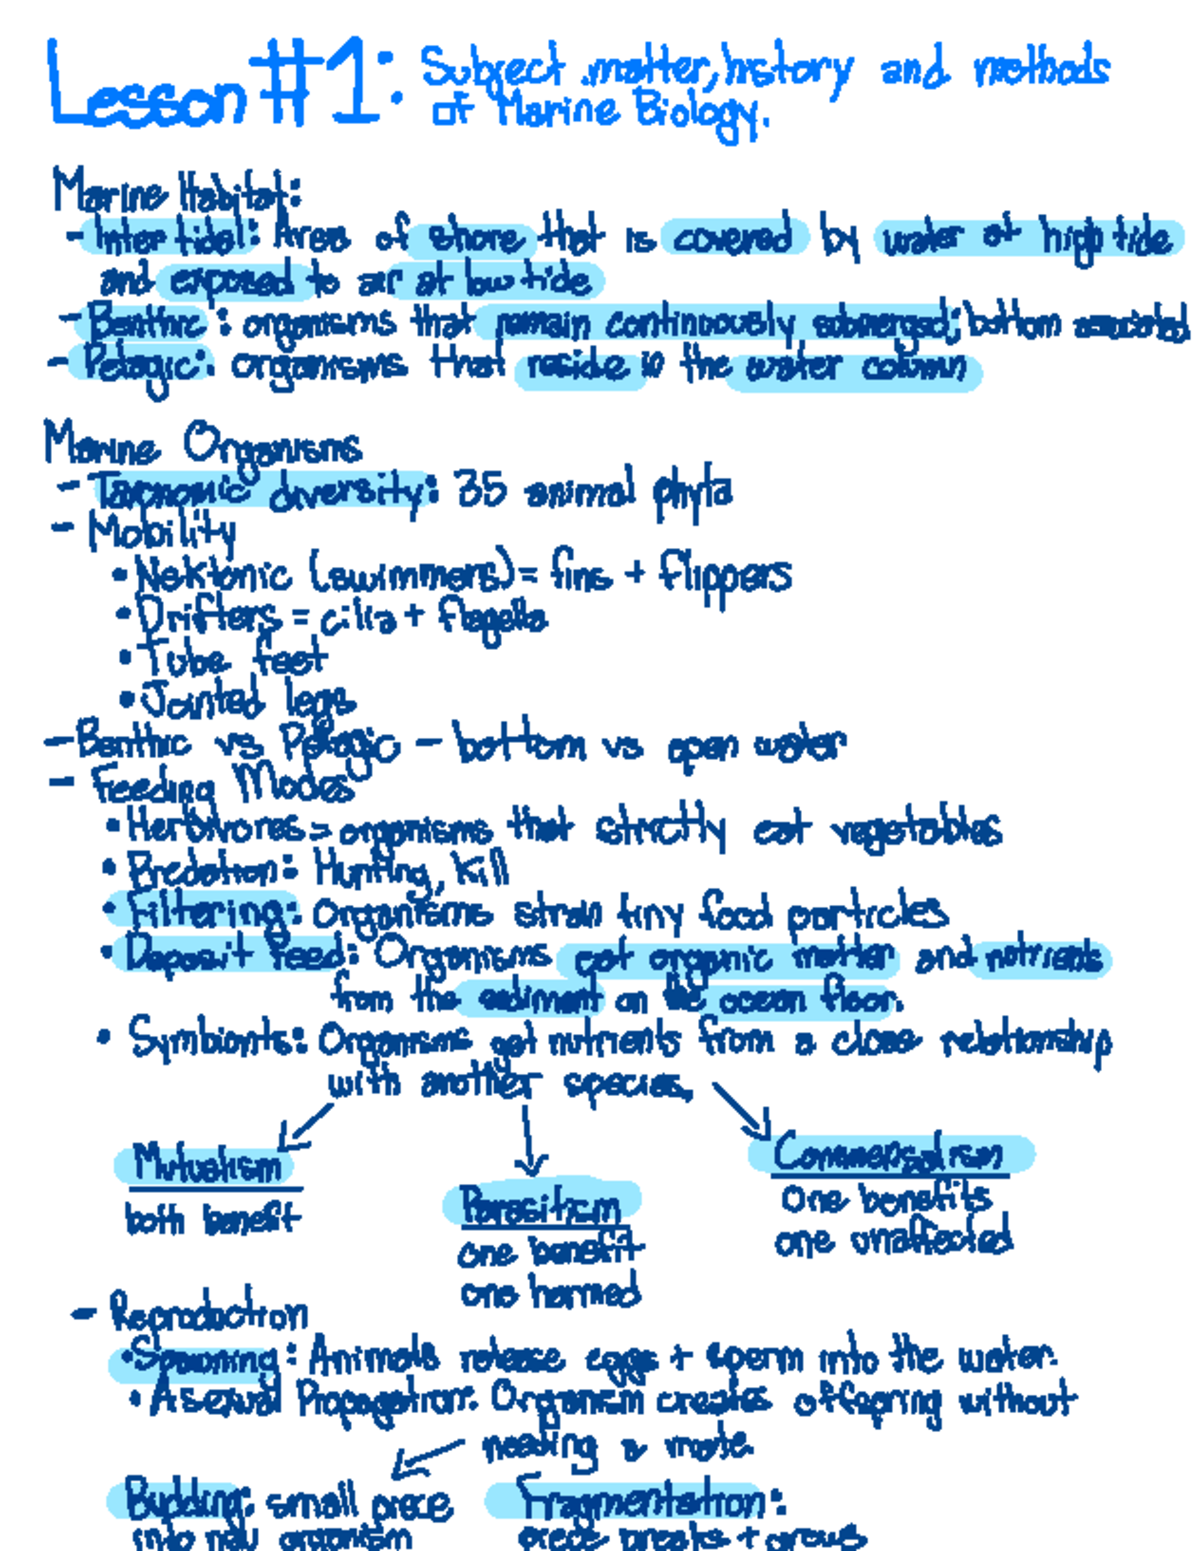 Lesson #1: Subject matter, history and methods
of Marine Biology.
Marine Habitat:
- Intertidal: Area of shore that is covered by water at high tide
and exposed to air at low tide
- Benthic: organisms that remain continuously submerged; bottom associated
- Pelagic: organisms that reside in the water column
Marine Organisms
- Taxonomic diversity: 35 animal phyla
- Mobility
• Nektonic (swimmers) = fins + flippers
• Drifters = cilia + flagella
• Tube feet
• Jointed legs
- Benthic vs Pelagic - bottom vs open water
- Feeding Modes
• Herbivores = organisms that strictly eat vegetables
• Predation: Hunting, kill
• Filtering: Organisms strain tiny food particles
• Deposit feed: Organisms eat organic matter and nutrients
from the sediment on the ocean floor.
• Symbionts: Organisms get nutrients from a close relationship
with another species.
Mutualism
both benefit
Parasitism
one benefit
one harmed
Commensalism
One benefits
one unaffected
- Reproduction
• Spawning: Animals release eggs + sperm into the water.
• Asexual Propagation: Organism creates offspring without
needing a mate.
Budding: small piece
into new organism
Fragmentation:
piece breaks + grows